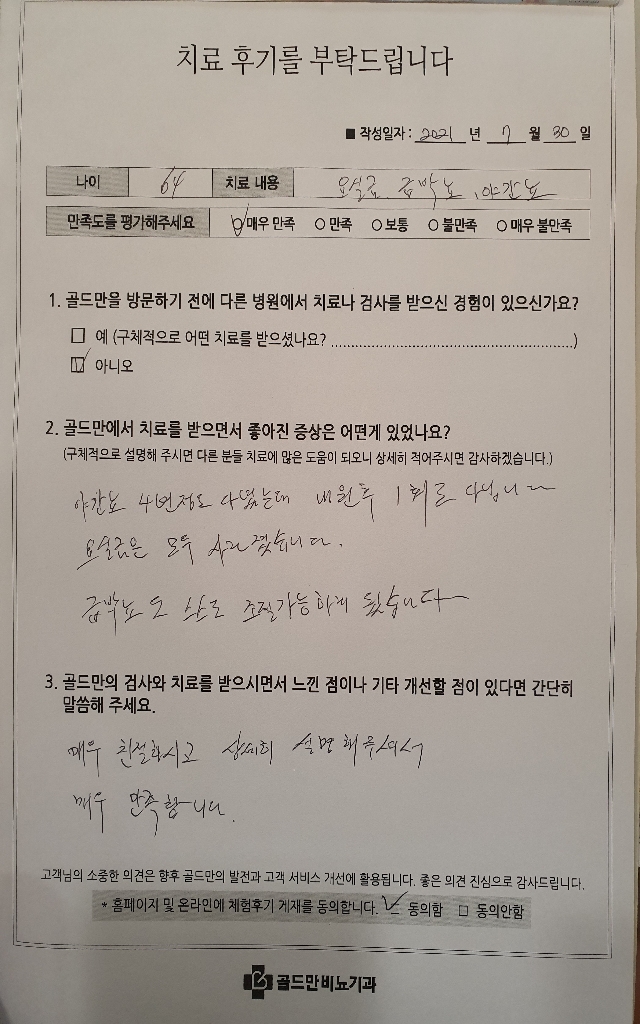 치료 후기를 부탁드립니다
■ 작성일자 : 2021 년 7 월 30 일
나이 64 치료 내용 요실금, 급박뇨, 야간뇨
만족도를 평가해주세요 매우 만족 만족 보통 불만족 매우 불만족
1. 골드만을 방문하기 전에 다른 병원에서 치료나 검사를 받으신 경험이 있으신가요?
예 (구체적으로 어떤 치료를 받으셨나요? ........................................................)
아니오
2. 골드만에서 치료를 받으면서 좋아진 증상은 어떤게 있었나요?
(구체적으로 설명해 주시면 다른 분들 치료에 많은 도움이 되오니 상세히 적어주시면 감사하겠습니다.)
야간뇨 4번정도 다녔는데 내원후 1회로 다닙니다
요실금은 모두 사라졌습니다.
급박뇨도 스스로 조절가능하게 됐습니다
3. 골드만의 검사와 치료를 받으시면서 느낀 점이나 기타 개선할 점이 있다면 간단히
말씀해 주세요.
매우 친절하시고 상세히 설명해주셔서
매우 만족합니다.
고객님의 소중한 의견은 향후 골드만의 발전과 고객 서비스 개선에 활용됩니다. 좋은 의견 진심으로 감사드립니다.
* 홈페이지 및 온라인에 체험후기 게재를 동의합니다. 동의함 동의안함
골드만비뇨기과